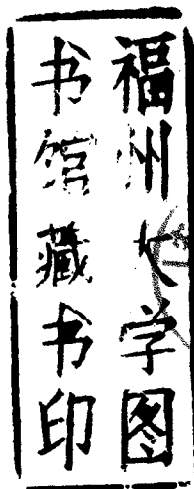 福州大学图
书馆藏书印